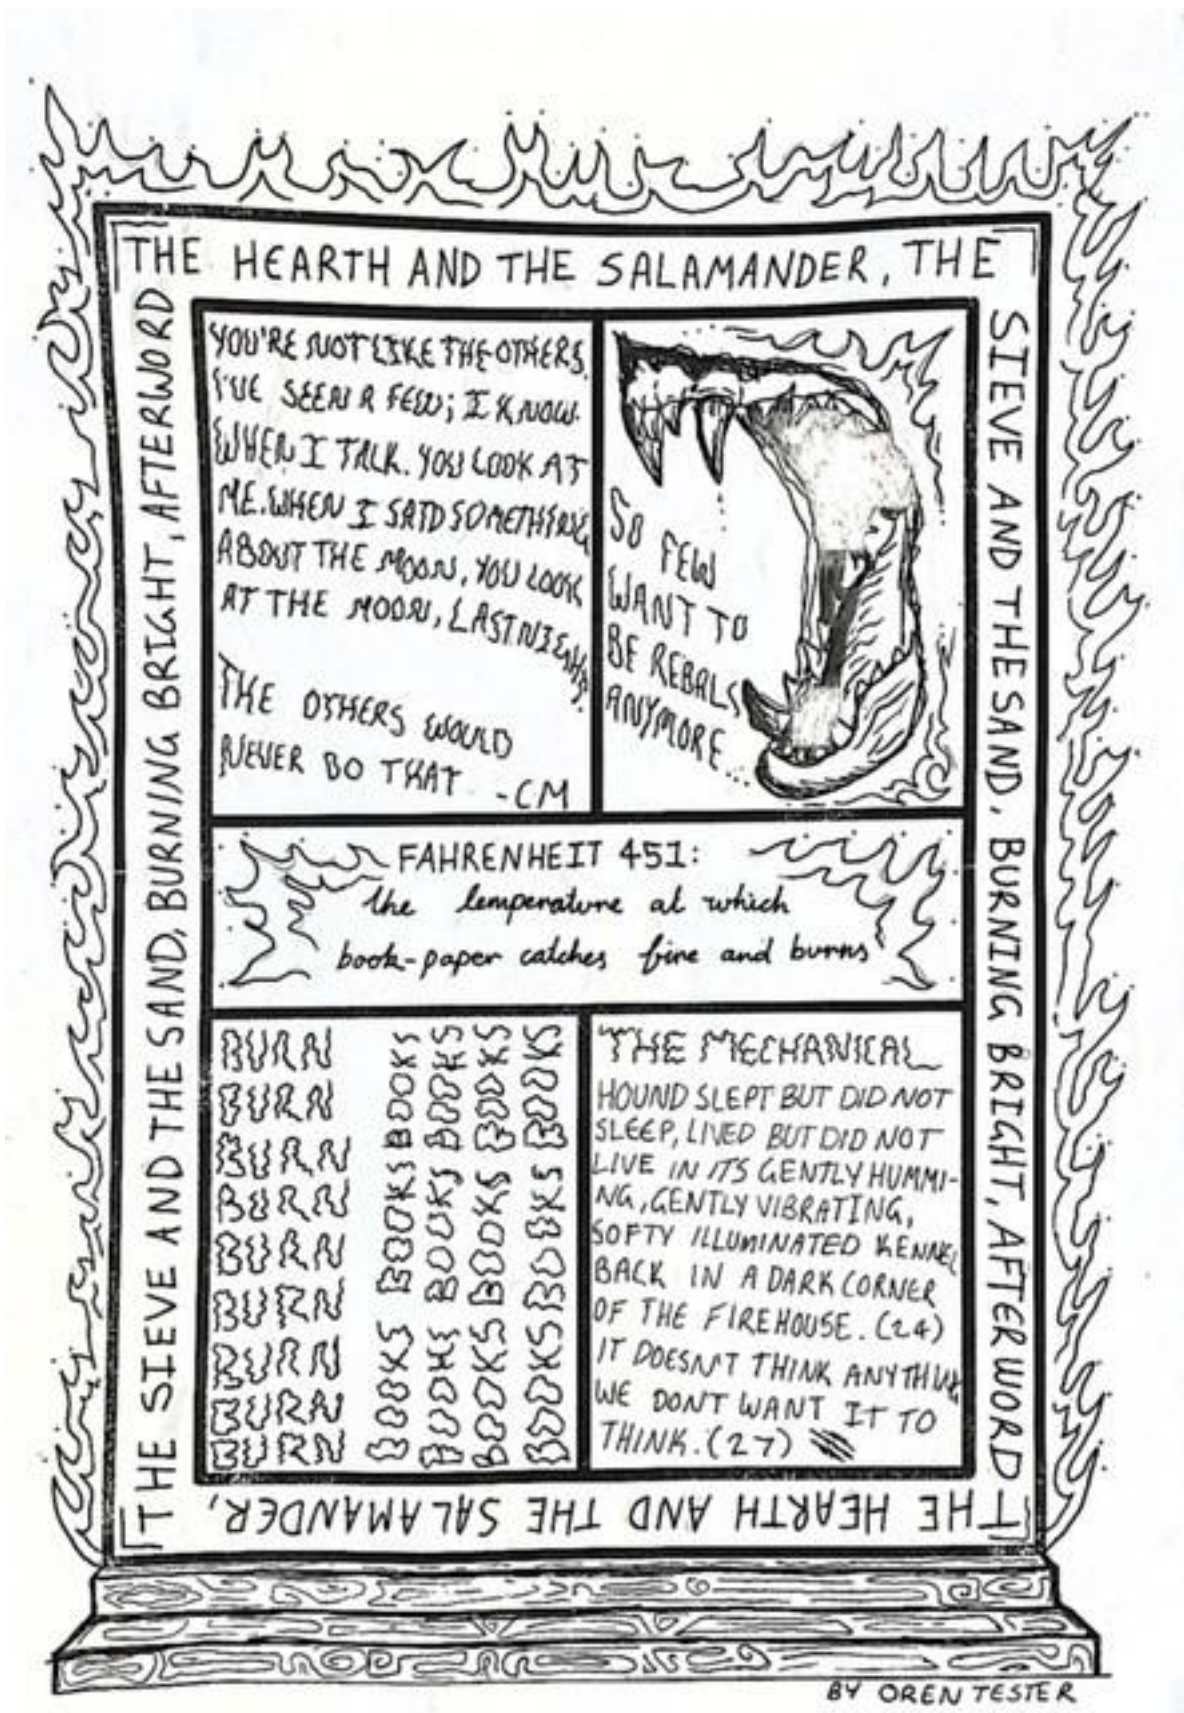 THE HEARTH AND THE SALAMANDER, THE
SIEVE AND THE SAND, BURNING BRIGHT, AFTERWORD
THE HEARTH AND THE SALAMANDER,
THE SIEVE AND THE SAND, BURNING BRIGHT, AFTERWORD
YOU'RE NOT LIKE THE OTHERS.
I'VE SEEN A FEW; I KNOW.
WHEN I TALK. YOU LOOK AT
ME. WHEN I SAID SOMETHING
ABOUT THE MOON, YOU LOOK
AT THE MOON, LAST NIGHT.
THE OTHERS WOULD
NEVER DO THAT -CM
SO FEW
WANT TO
BE REBALS
ANYMORE...
FAHRENHEIT 451:
the temperature at which
book-paper catches fire and burns
BURN
BURN
BURN
BURN
BURN
BURN
BURN
BURN
BURN
BOOKS BOOKS BOOKS
BOOKS BOOKS BOOKS
BOOKS BOOKS BOOKS
BOOKS BOOKS BOOKS
THE MECHANICAL
HOUND SLEPT BUT DID NOT
SLEEP, LIVED BUT DID NOT
LIVE IN ITS GENTLY HUMMI-
NG, GENTLY VIBRATING,
SOFTY ILLUMINATED KENNEL
BACK IN A DARK CORNER
OF THE FIREHOUSE. (24)
IT DOESN'T THINK ANYTHING
WE DONT WANT IT TO
THINK. (27)
BY OREN TESTER